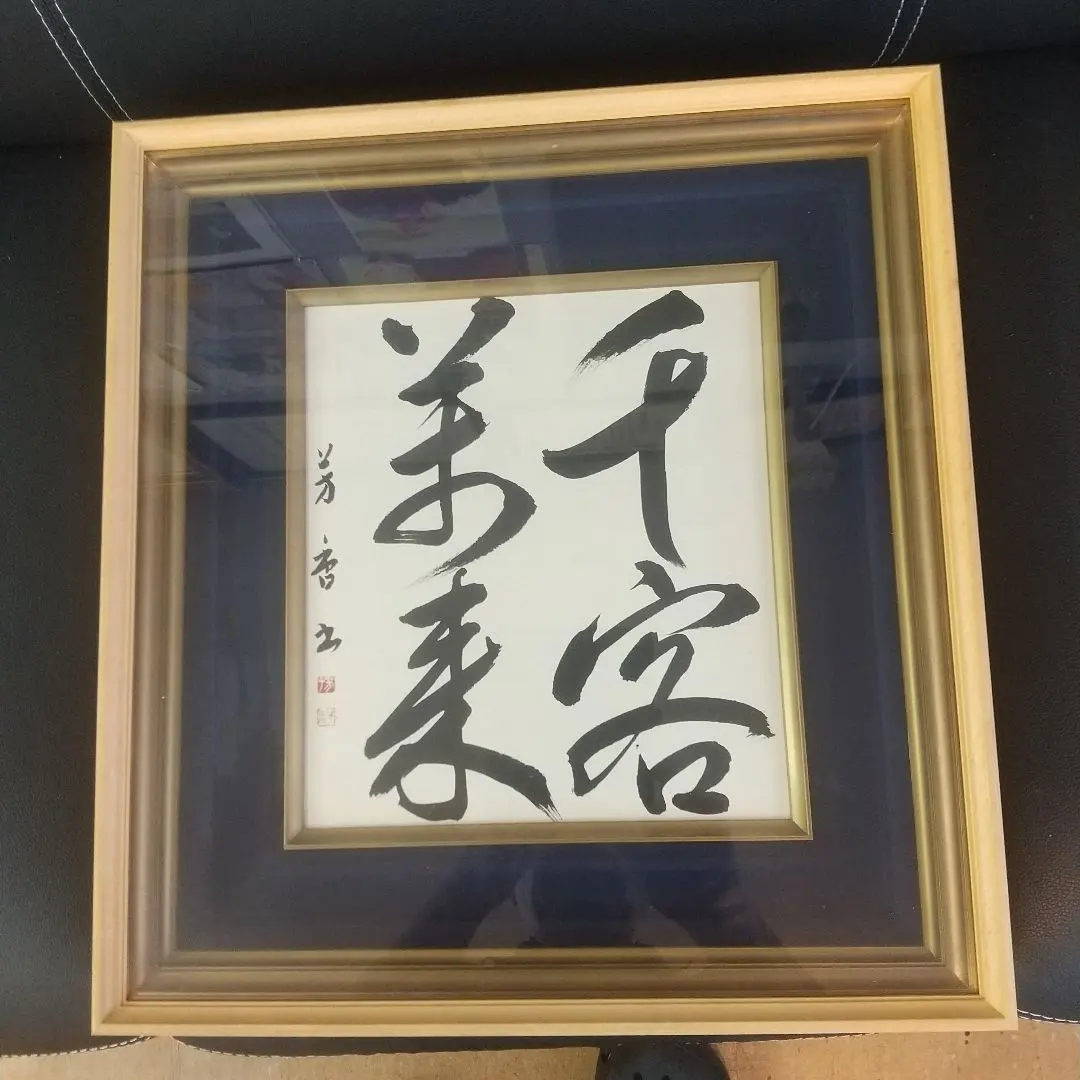 千客
萬来
芳香書